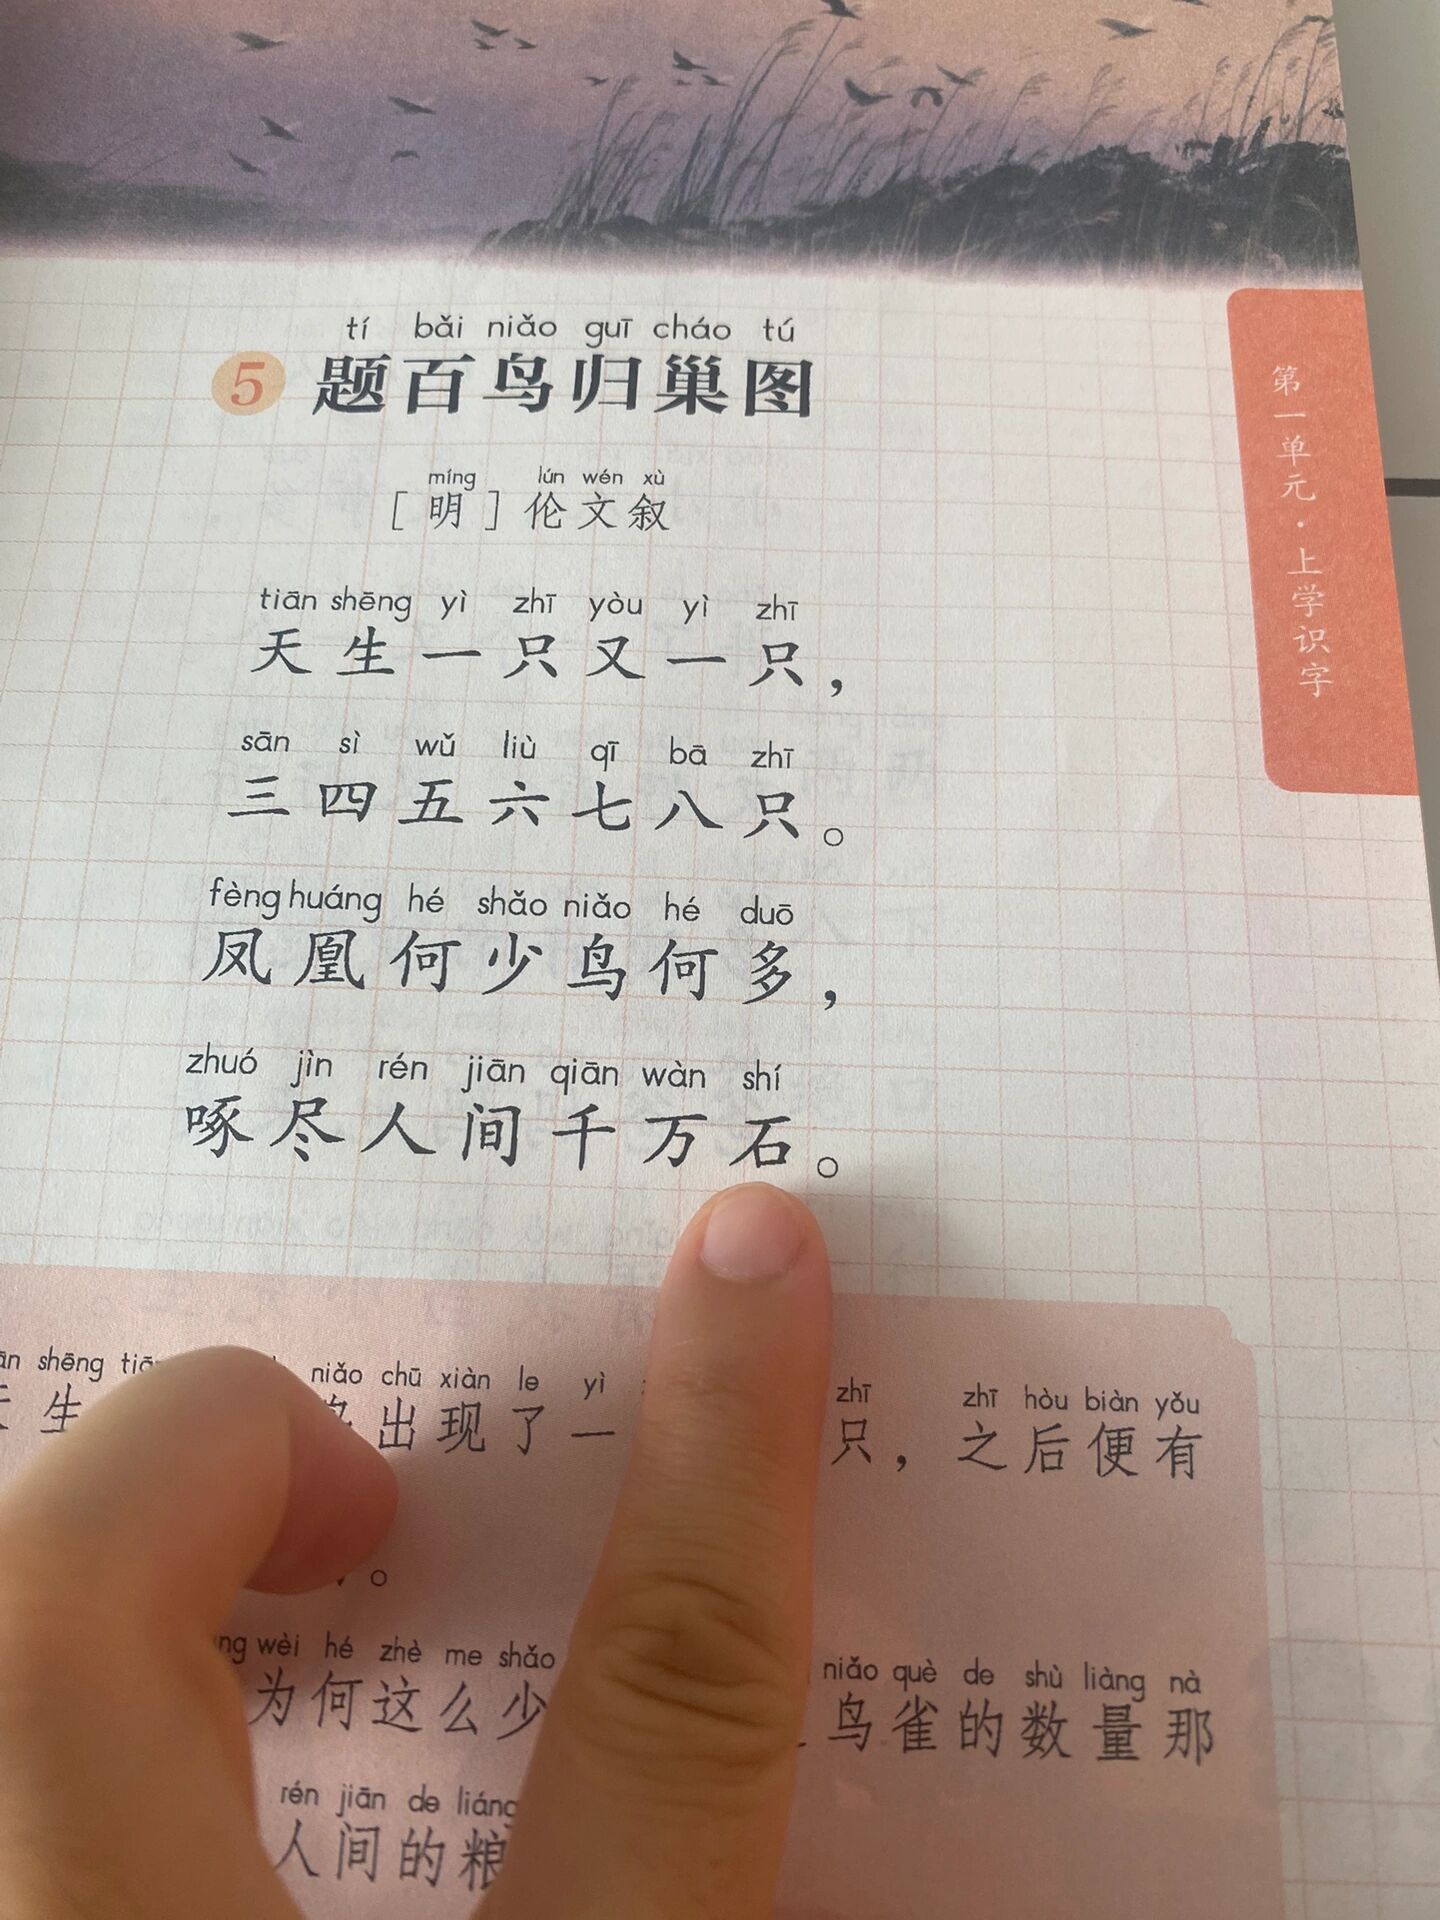 tí bǎi niǎo guī cháo tú
5 题百鸟归巢图
míng lún wén xù
[明] 伦文叙
tiān shēng yì zhī yòu yì zhī
天生一只又一只，
sān sì wǔ liù qī bā zhī
三四五六七八只。
fèng huáng hé shǎo niǎo hé duō
凤凰何少鸟何多，
zhuó jìn rén jiān qiān wàn shí
啄尽人间千万石。
第一单元·上学识字
shēng niǎo chū xiàn le yì zhī zhī hòu biàn yǒu
生 出现了一 只，之后便有
。
wèi hé zhè me shǎo niǎo què de shù liàng nà
为何这么少 鸟雀的数量那
rén jiān de
人间的粮